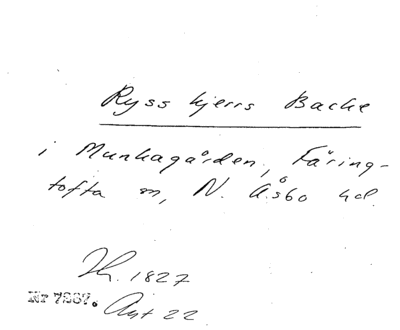 Ryss kjerrs Backe
i Munkagården, Färing-
tofta sn, N. Åsbo hd.
1827
Nr 7887. Akt 22